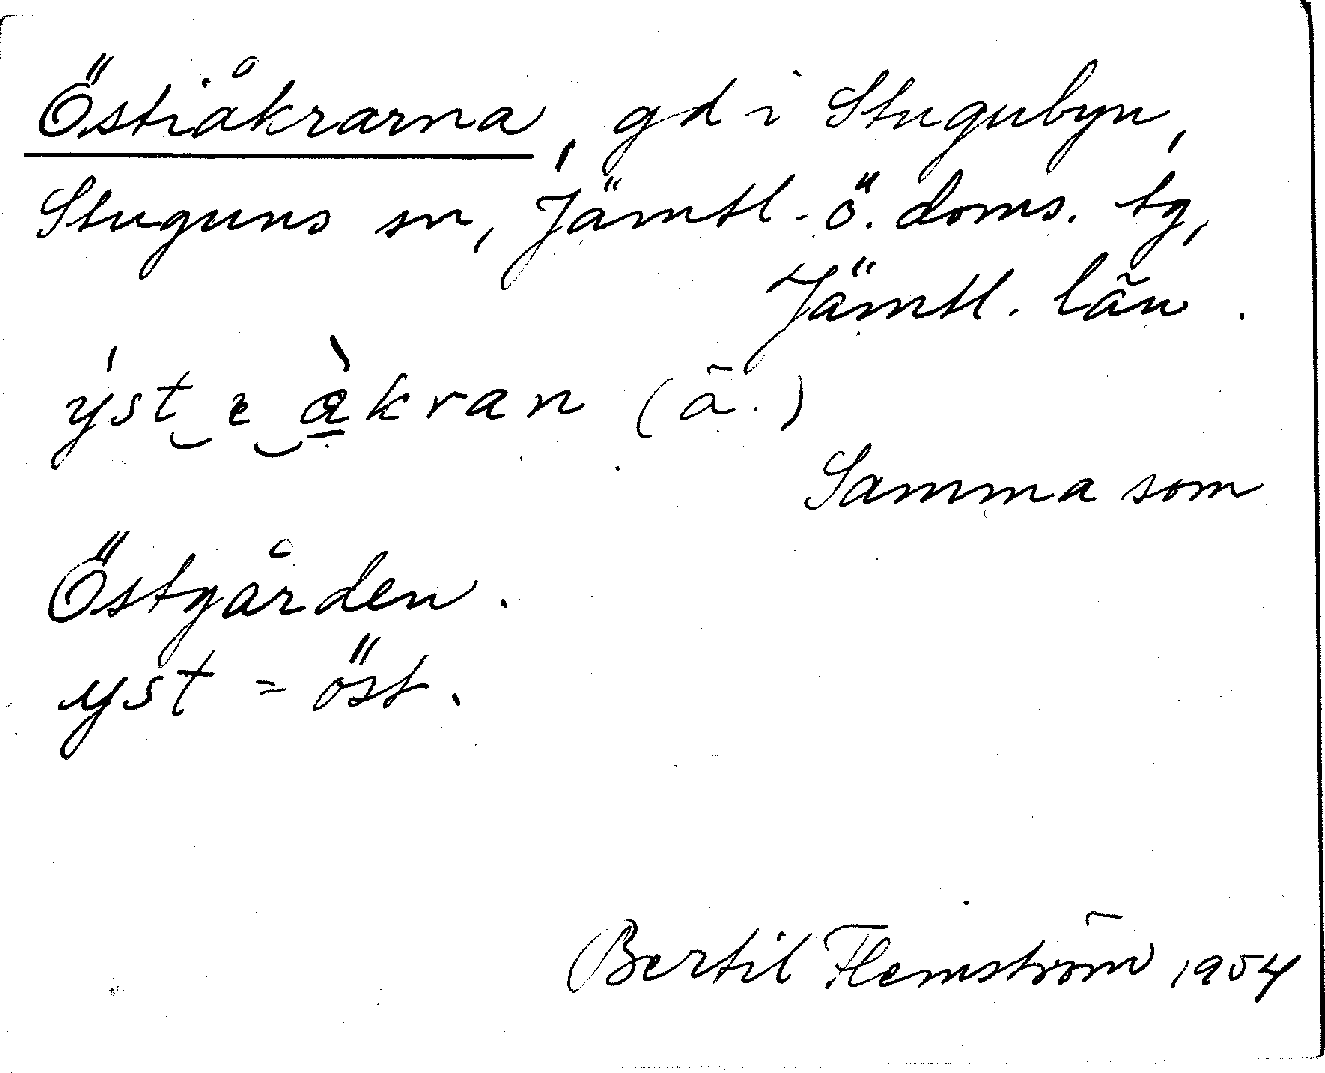 Östiåkrarna, gd i Stugubyn,
Stuguns sn, Jämtl. ö. doms. tg,
Jämtl. län.
ýst‿ɛ‿æ̀kran (ä.)
Samma som
Östgården.
yst = öst.
Bertil Flemström 1954